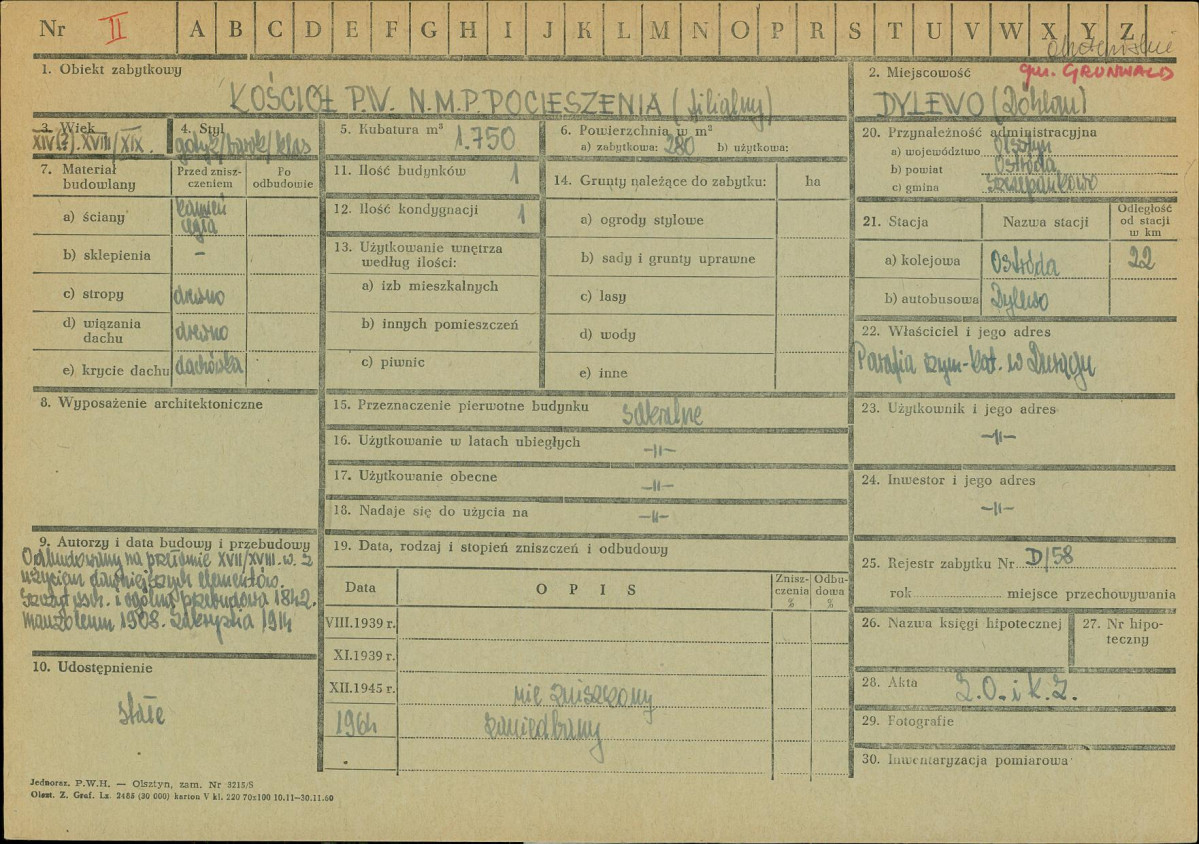 Nr II A B C D E F G H I J K L M N O P R S T U V W X Y Z
gm. GRUNWALD
1. Obiekt zabytkowy
KOŚCIÓŁ P.W. N.M.P. POCIESZENIA (filialny)
2. Miejscowość
DYLEWO (Döhlau)
3. Wiek
XIV(?). XVIII/XIX.
4. Styl
gotyk/barok/klas
5. Kubatura m³
1.750
6. Powierzchnia w m²
a) zabytkowa: 280 b) użytkowa:
7. Materiał budowlany
Przed zniszczeniem
Po odbudowie
a) ściany kamień cegła
b) sklepienia –
c) stropy drewno
d) wiązania dachu drewno
e) krycie dachu dachówka
8. Wyposażenie architektoniczne
9. Autorzy i data budowy i przebudowy
Odbudowany na przełomie XVII/XVIII. w. z
użyciem dawniejszych elementów.
Szczyt wsch. i ogólna przebudowa 1842.
mauzoleum 1908. zakrystia 1914
10. Udostępnienie
stałe
11. Ilość budynków 1
12. Ilość kondygnacji 1
13. Użytkowanie wnętrza
według ilości:
a) izb mieszkalnych
b) innych pomieszczeń
c) piwnic
14. Grunty należące do zabytku: ha
a) ogrody stylowe
b) sady i grunty uprawne
c) lasy
d) wody
e) inne
15. Przeznaczenie pierwotne budynku sakralne
16. Użytkowanie w latach ubiegłych -"-
17. Użytkowanie obecne -"-
18. Nadaje się do użycia na -"-
19. Data, rodzaj i stopień zniszczeń i odbudowy
Data O P I S Zniszczenia % Odbudowa %
VIII.1939 r.
XI.1939 r.
XII.1945 r. nie zniszczony
1964 zaniedbany
20. Przynależność administracyjna
a) województwo Olsztyn
b) powiat Ostróda
c) gmina Szczepankowo
21. Stacja Nazwa stacji Odległość od stacji w km
a) kolejowa Ostróda 22
b) autobusowa Dylewo
22. Właściciel i jego adres
Parafia rzym-kat. w Durągu
23. Użytkownik i jego adres
-"-
24. Inwestor i jego adres
-"-
25. Rejestr zabytku Nr D/58
rok miejsce przechowywania
26. Nazwa księgi hipotecznej
27. Nr hipoteczny
28. Akta Z.O. i K.Z.
29. Fotografie
30. Inwentaryzacja pomiarowa
Jednoraz. P.W.H. — Olsztyn, zam. Nr 3215/S
Olszt. Z. Graf. Lz. 2465 (30 000) karton V kl. 220 70x100 10.11—30.11.60